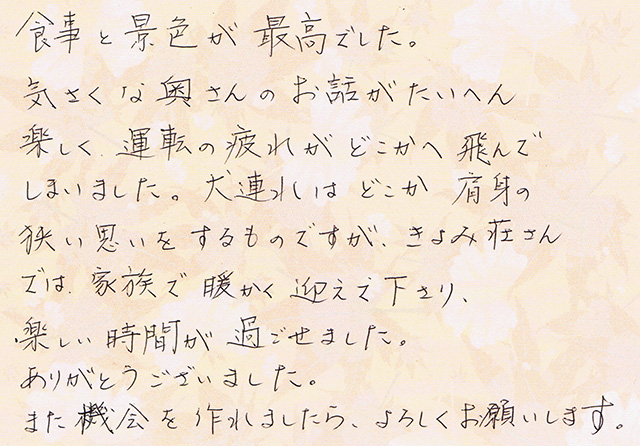 食事と景色が最高でした。
気さくな奥さんのお話がたいへん
楽しく、運転の疲れがどこかへ飛んで
しまいました。犬連れはどこか肩身の
狭い思いをするものですが、きよみ荘さん
では、家族で暖かく迎えて下さり、
楽しい時間が過ごせました。
ありがとうございました。
また機会を作れましたら、よろしくお願いします。